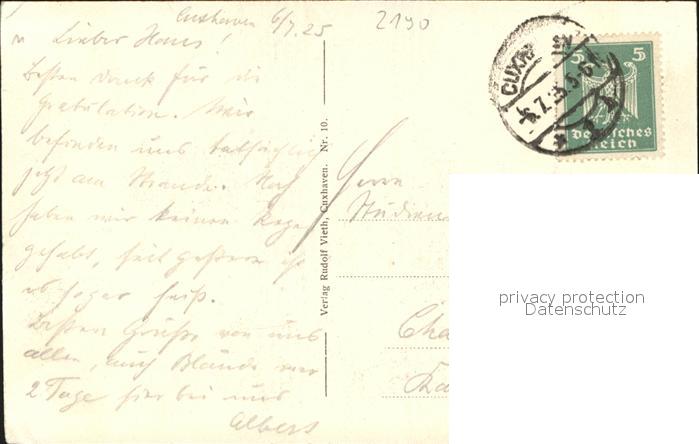 Cuxhaven 6/7.25
2190
Lieber Hans!
Besten Dank für die
Gratulation. Wir
befinden uns tatsächlich
jetzt am Strande. Noch
haben wir keinen Regen
gehabt, seit gestern ist
es sogar heiß.
Besten Grüße von uns
allen, auch war
2 Tage hier bei uns
Albert
Verlag Rudolf Vieth, Cuxhaven. Nr. 10.
CUXH
6.7.25.5-6
5 5
Deutsches
Reich
Herrn
Studien
Cha
privacy protection
Datenschutz